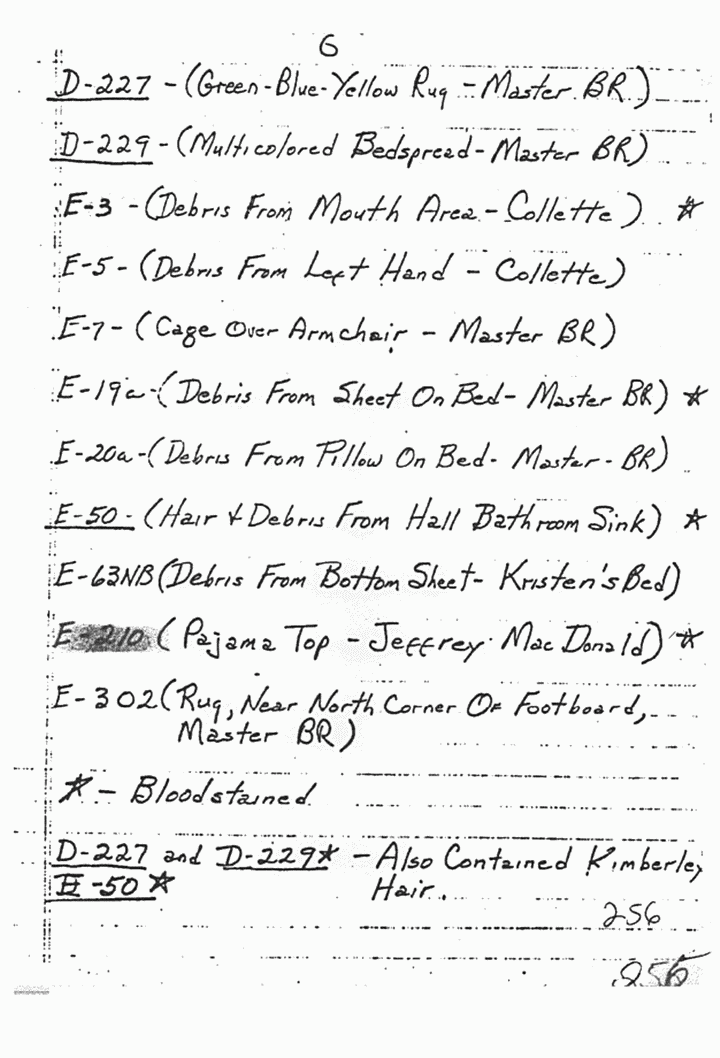 6
D-227 - (Green-Blue-Yellow Rug - Master BR)
D-229 - (Multicolored Bedspread - Master BR)
E-3 - (Debris From Mouth Area - Collette) ☆
E-5 - (Debris From Left Hand - Collette)
E-7 - (Cage Over Armchair - Master BR)
E-19a - (Debris From Sheet On Bed - Master BR) ☆
E-20a - (Debris From Pillow On Bed - Master - BR)
E-50 - (Hair & Debris From Hall Bathroom Sink) ☆
E-63NB (Debris From Bottom Sheet - Kristen's Bed)
E-210 (Pajama Top - Jeffrey MacDonald) ☆
E-302 (Rug, Near North Corner Of Footboard,
Master BR)
☆ - Bloodstained
D-227 and D-229☆ - Also Contained Kimberley
E-50☆ Hair.
256
256